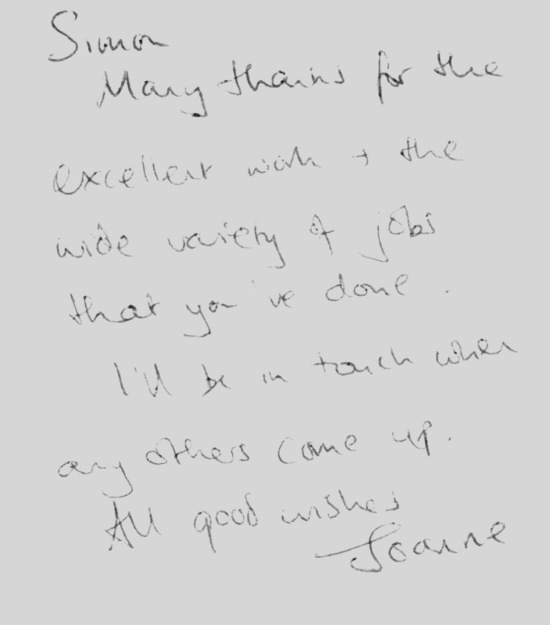 Simon
Many thanks for the
excellent work + the
wide variety of jobs
that you've done.
I'll be in touch when
any others come up.
All good wishes
Joanne